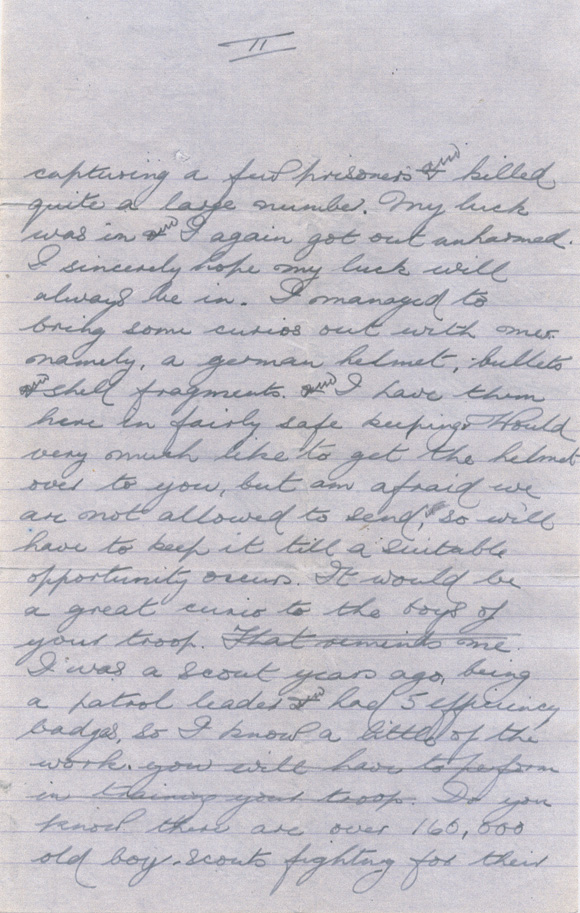 II
capturing a few prisoners and killed
quite a large number. My luck
was in and I again got out unharmed.
I sincerely hope my luck will
always be in. I managed to
bring some curios out with me.
namely, a german helmet, bullets
and shell fragments. and I have them
here in fairly safe keeping. Would
very much like to get the helmet
over to you, but am afraid we
are not allowed to send, so will
have to keep it till a suitable
opportunity occurs. It would be
a great curio to the boys of
your troop. That reminds me.
I was a scout years ago, being
a patrol leader and had 5 efficiency
badges, so I know a little of the
work. you will have to peform
in training your troop. Do you
know there are over 160,000
old boy-scouts fighting for their